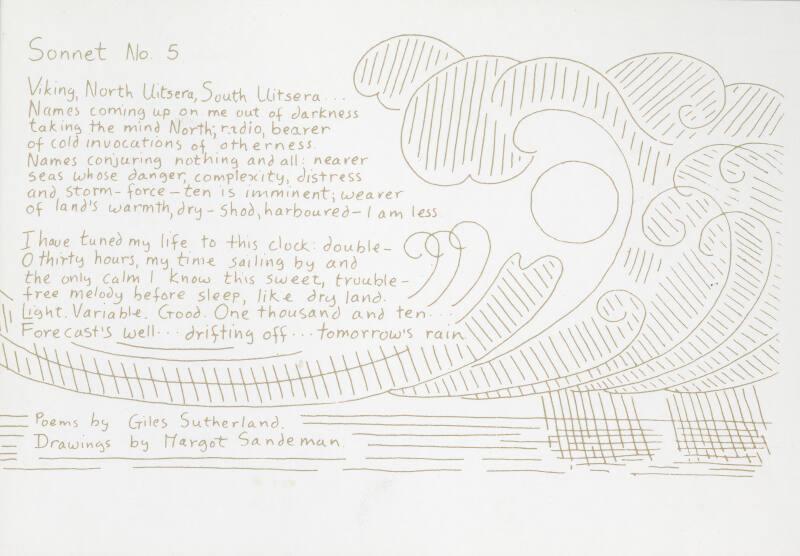 Sonnet No. 5
Viking, North Uitsera, South Uitsera...
Names coming up on me out of darkness
taking the mind North; radio, bearer
of cold invocations of otherness.
Names conjuring nothing and all: nearer
seas whose danger, complexity, distress
and storm-force-ten is imminent; wearer
of land's warmth, dry-shod, harboured-I am less
I have tuned my life to this clock: double-
O thirty hours, my time sailing by and
the only calm I know this sweet, trouble-
free melody before sleep, like dry land.
Light. Variable. Good. One thousand and ten...
Forecast's well... drifting off... tomorrow's rain
Poems by Giles Sutherland.
Drawings by Margot Sandeman.